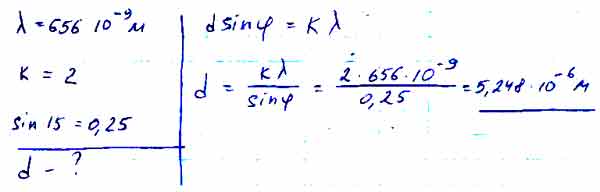 λ = 656 10⁻⁹ м
K = 2
sin 15 = 0,25
d - ?
d sin φ = K λ
d = Kλ / sin φ = 2 · 656 · 10⁻⁹ / 0,25 = 5,248 · 10⁻⁶ м